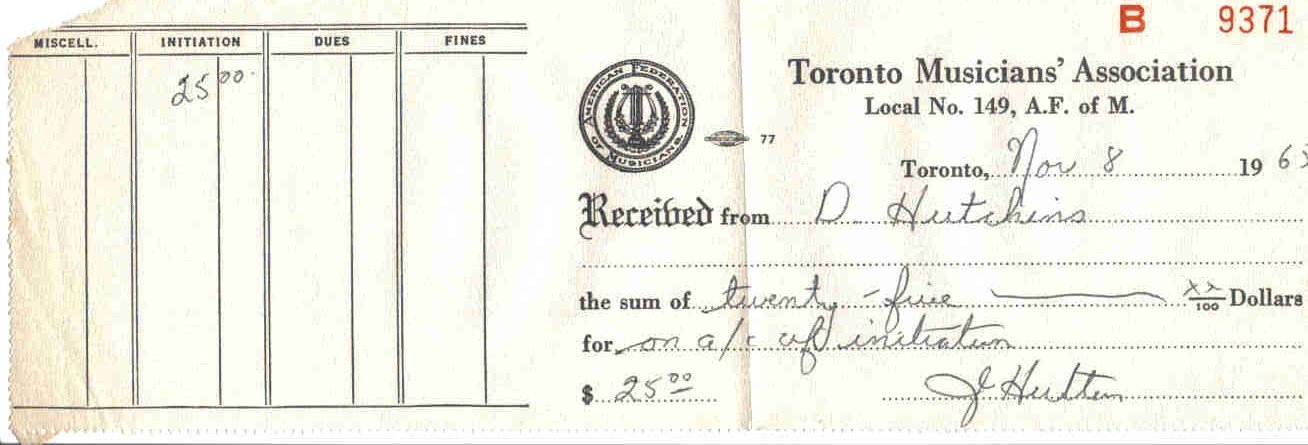 B 9371
MISCELL. INITIATION DUES FINES
25 00
AMERICAN FEDERATION OF MUSICIANS.
77
Toronto Musicians' Association
Local No. 149, A.F. of M.
Toronto, Nov 8 19 63
Received from D. Hutchins
the sum of twenty-five xx/100 Dollars
for on a/c of initiation
$ 25 00